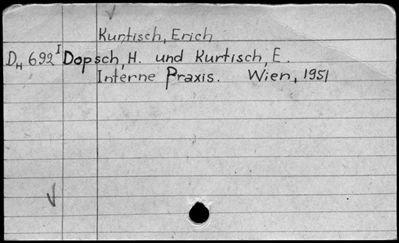 Kurtisch, Erich
DH 692 I Dopsch, H. und Kurtisch, E.
Interne Praxis. Wien, 1951